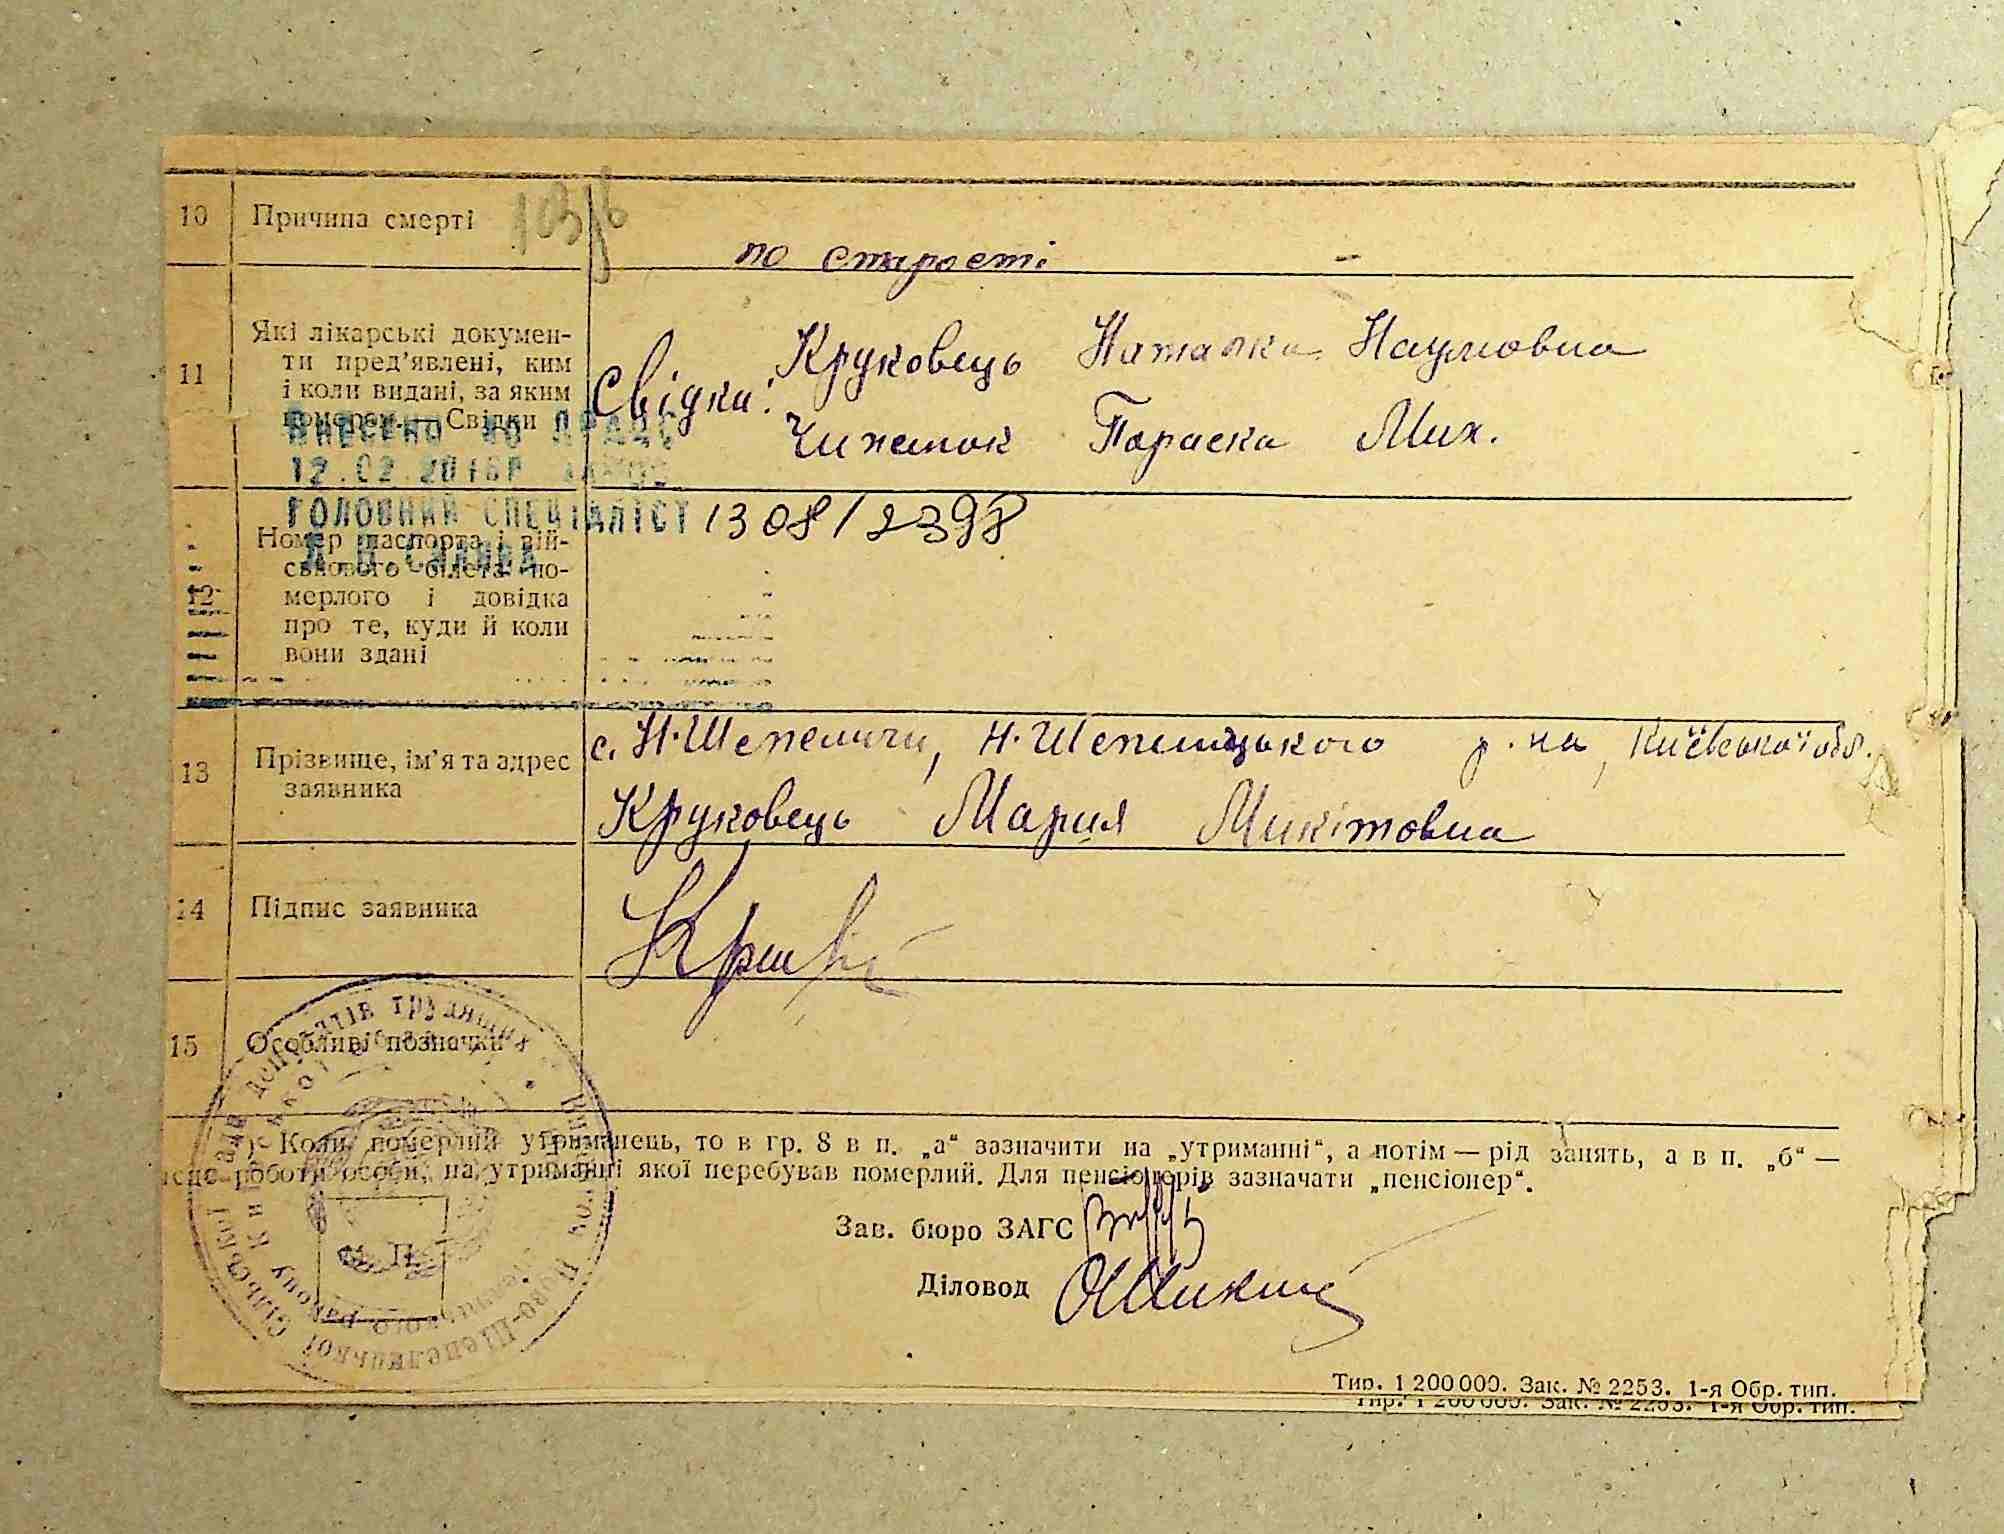 10 Причина смерті
по старості
11 Які лікарські докумен-
ти пред’явлені, ким
і коли видані, за яким
померех.—Свідки
Свідки: Круковець Наталка Наумовна
Чижеток Параска Мих.
ВНЕСЕНО ДО ДРАЦС
12.02.2018Р
ГОЛОВНИЙ СПЕЦІАЛІСТ
1308/2398
12 Номер паспорта і вій-
ськового білета по-
мерлого і довідка
про те, куди й коли
вони здані
13 Прізвище, ім’я та адрес
заявника
с. Н.Шепеличи, Н.Шепелицького р.на, Київської обл.
Круковець Мария Микітовна
14 Підпис заявника
15 Особливі позначки
Коли померлий утриманець, то в гр. 8 в п. „а“ зазначити на „утриманні“, а потім — рід занять, а в п. „б“ —
роботи особи, на утриманні якої перебував померлий. Для пенсіонерів зазначати „пенсіонер“.
Зав. бюро ЗАГС
Діловод
М. П.
депутатів трудящих Ново-Шепелицької Сільської
Тир. 1 200 000. Зак. № 2253. 1-я Обр. тип.
Тир. 1 200 000. Зак. № 2253. 1-я Обр. тип.